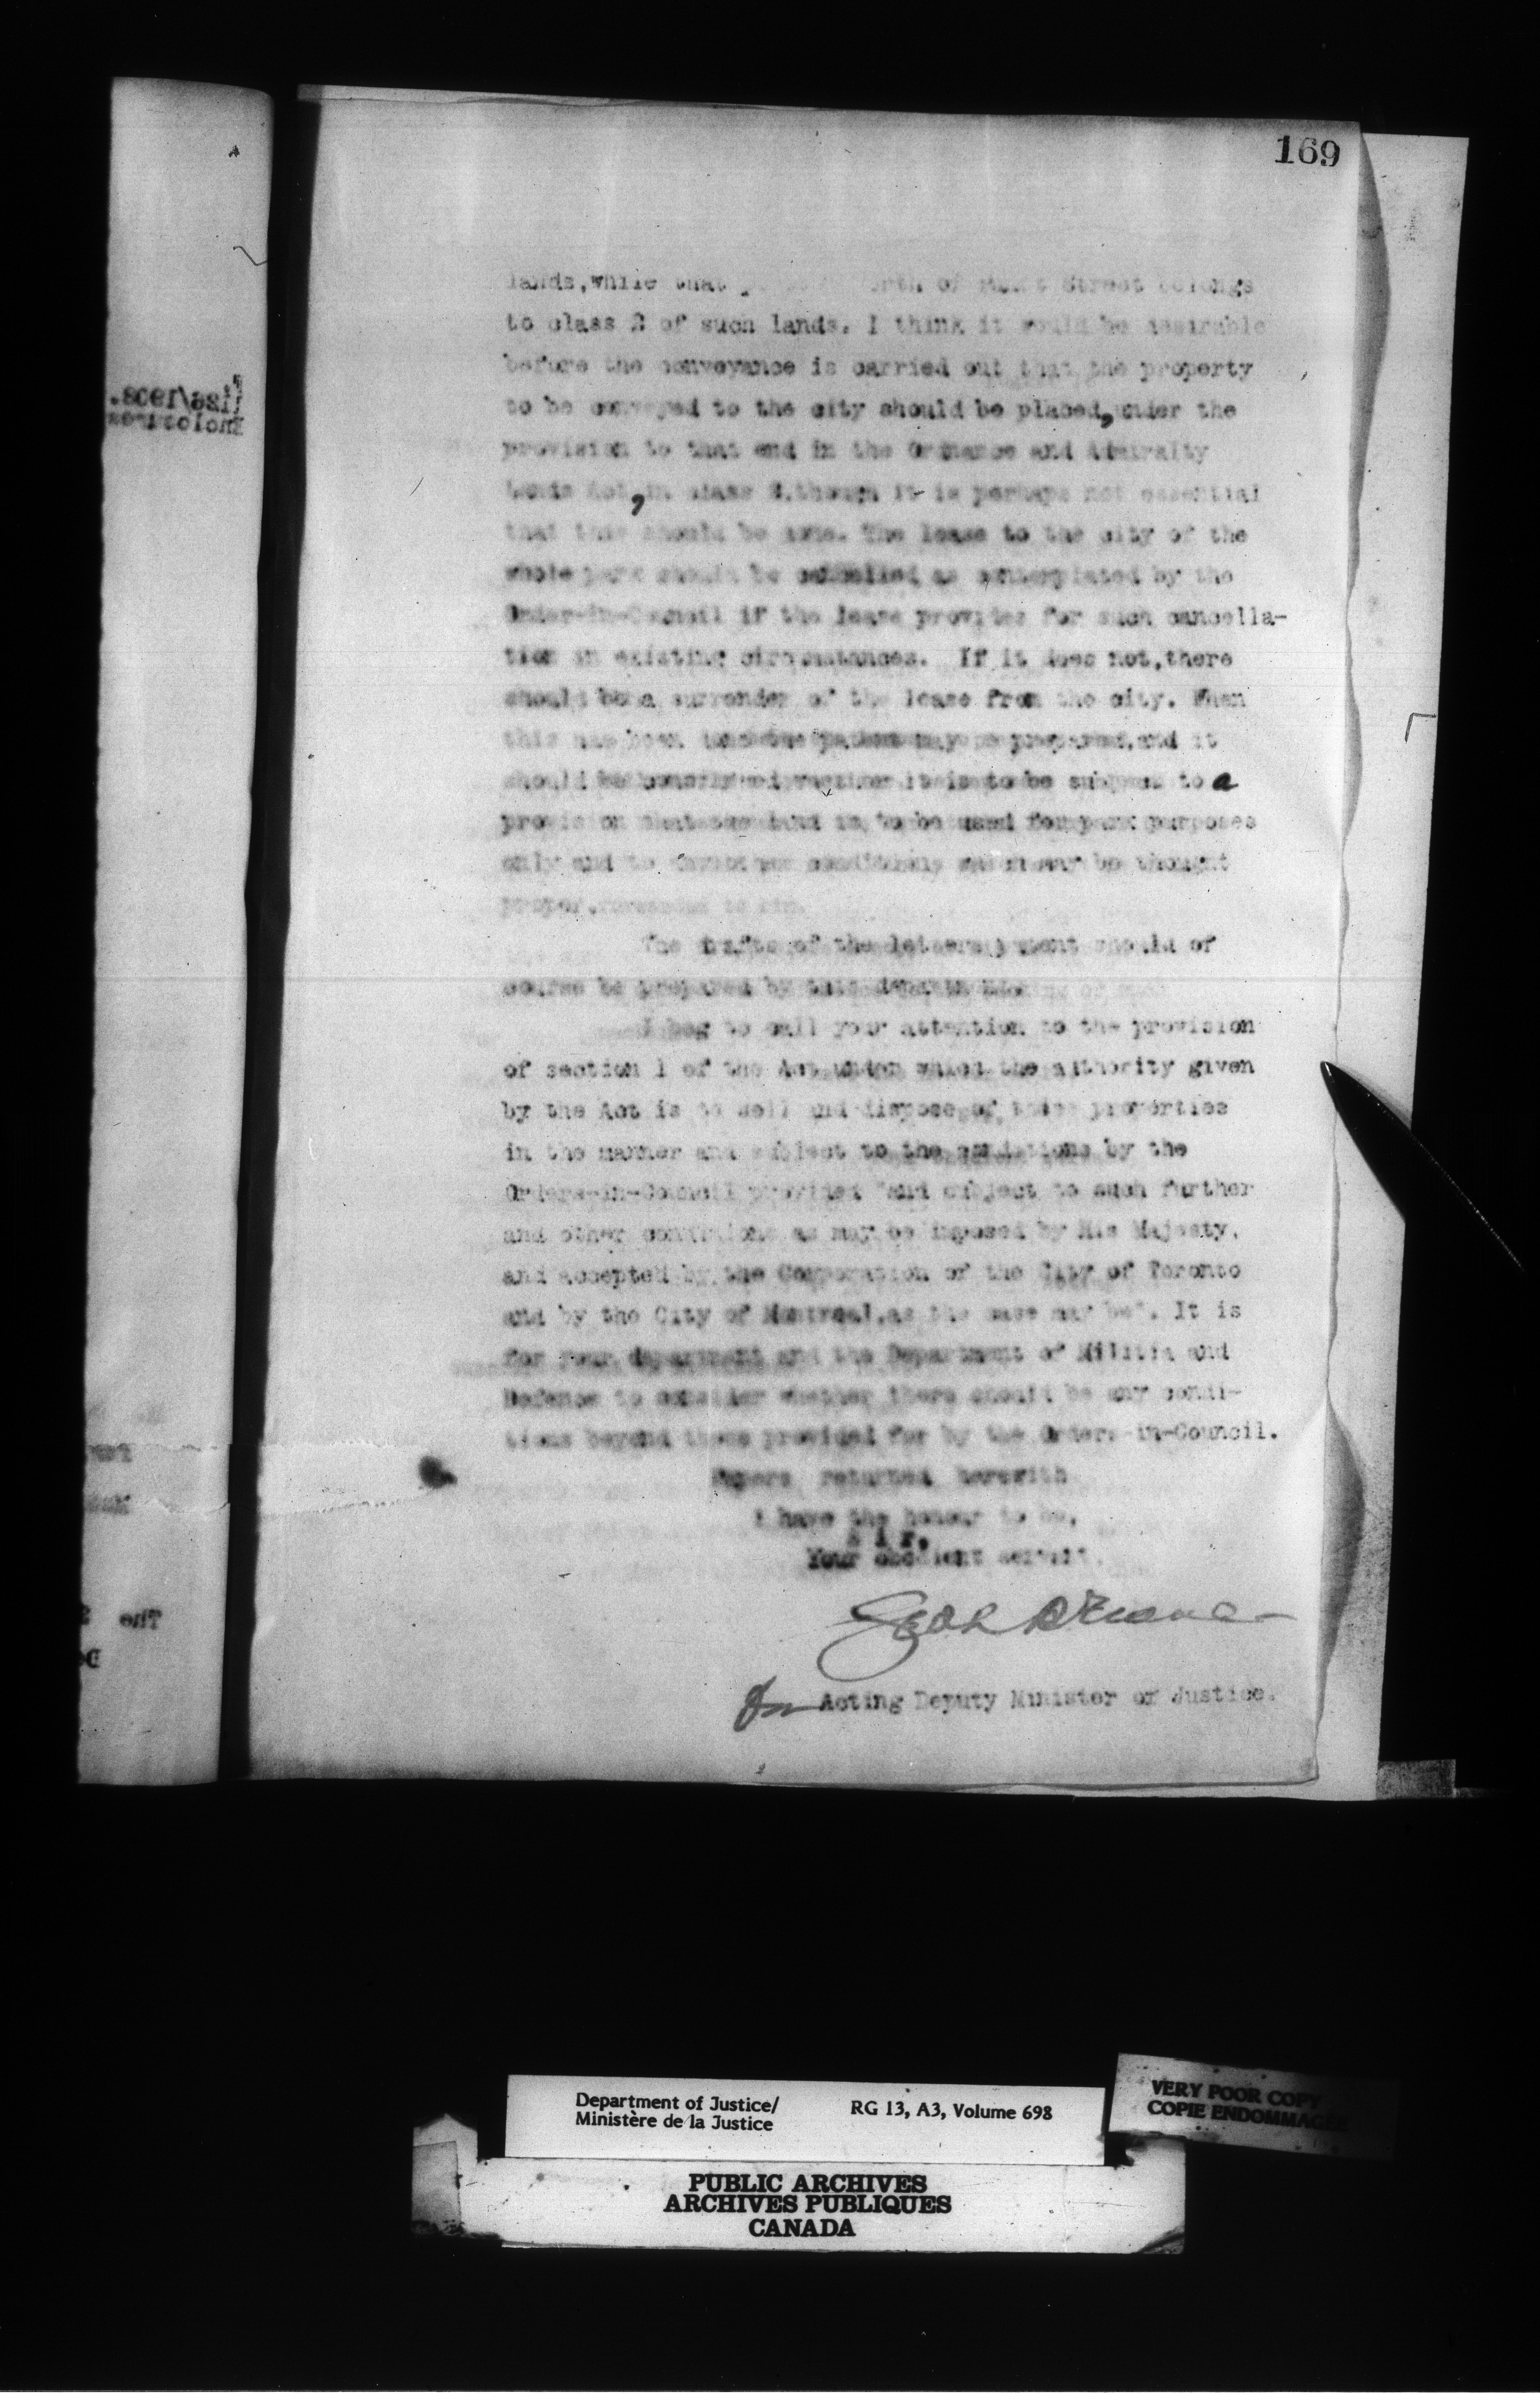 169
lands, while that of Street belongs
to class 2 of such lands. I think it would be desirable
before the conveyance is carried out that the property
to be conveyed to the city should be placed, under the
provision to that end in the Ordnance and Admiralty
Lands Act, in class 2. though it is perhaps not essential
that this should be done. The lease to the city of the
whole park should be cancelled as contemplated by the
Order-in-Council if the lease provides for such cancella-
tion in existing circumstances. If it does not, there
should be a surrender of the lease from the city. When
this has been may be prepared, and it
should be considered whether it is to be subject to a
provision that the land is to be used for park purposes
only and to conditions which may be thought
proper.
The drafts of the should of
course be prepared by this department.
I beg to call your attention to the provision
of section 1 of the Act under which the authority given
by the Act is to sell and dispose of these properties
in the manner and subject to the conditions by the
Orders-in-Council provided "and subject to such further
and other conditions as may be imposed by His Majesty,
and accepted by the Corporation of the City of Toronto
and by the City of Montreal, as the case may be". It is
for your department and the Department of Militia and
Defence to consider whether there should be any condi-
tions beyond those provided for by the Orders-in-Council.
Papers returned herewith
I have the honour to be,
Sir,
Your obedient servant,
for Acting Deputy Minister of Justice.
Department of Justice/
Ministère de la Justice
RG 13, A3, Volume 698
VERY POOR COPY
COPIE ENDOMMAGÉE
PUBLIC ARCHIVES
ARCHIVES PUBLIQUES
CANADA